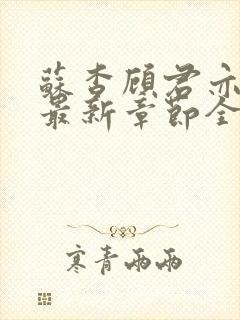 蘇杏顧君亦
最新章節全
寒青雨雨